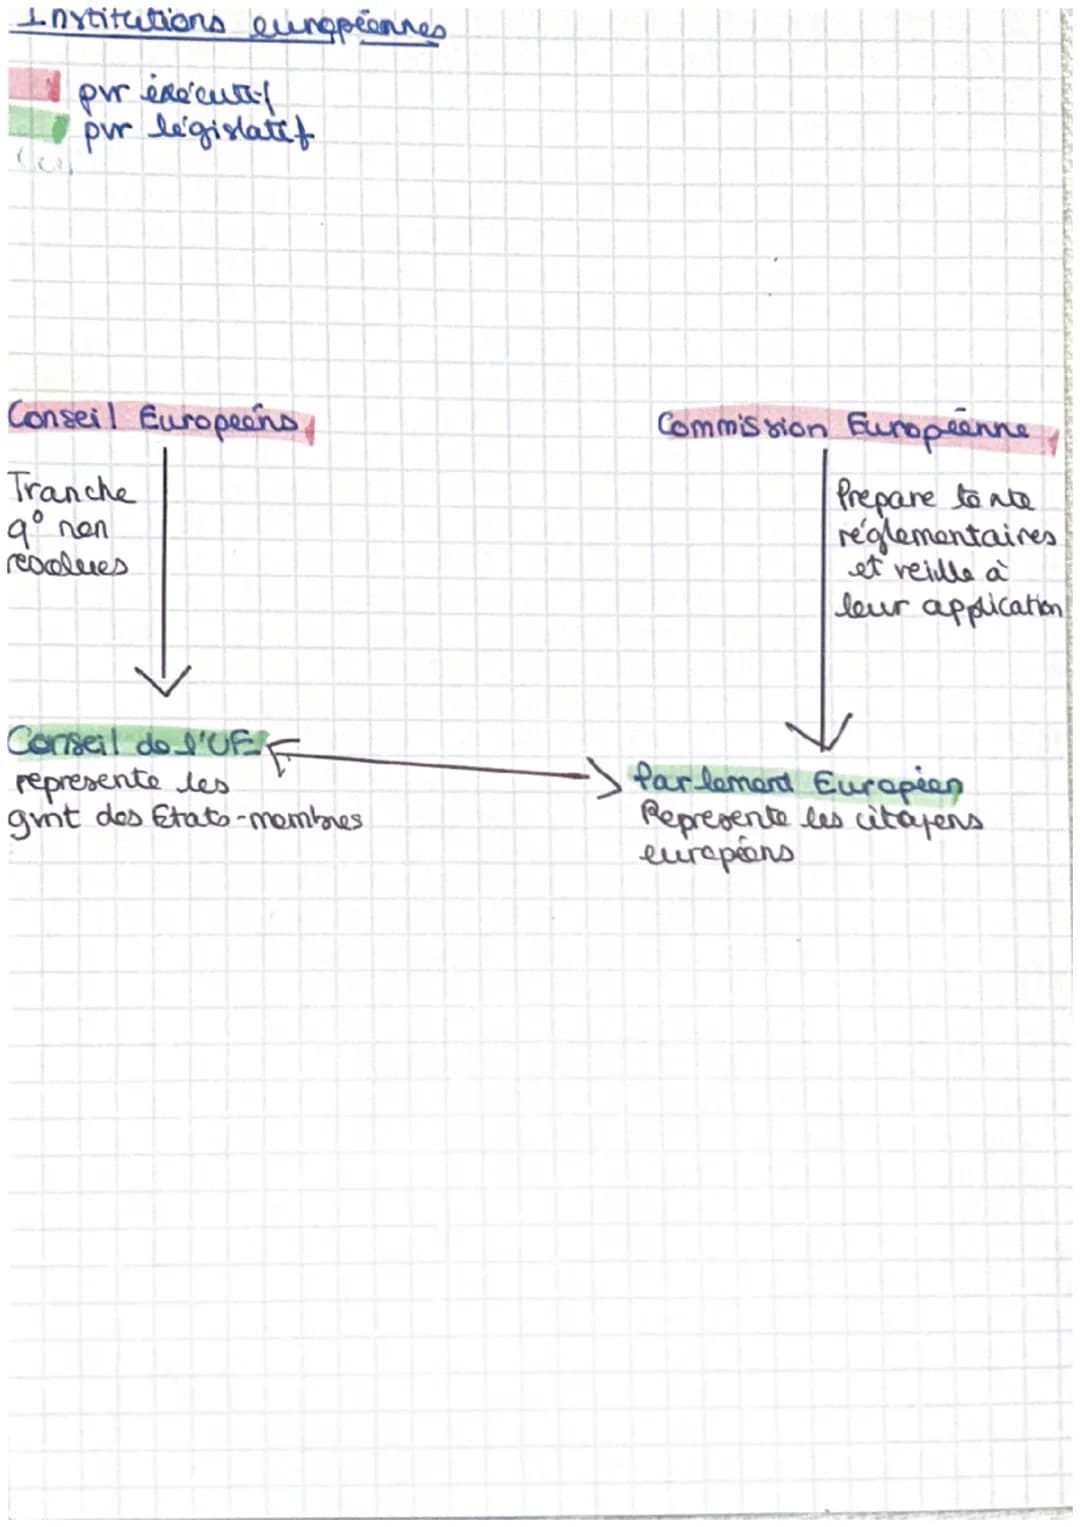 Institutions européennes
pvr éxécutif
pvr législatif
Conseil Européens
Commission Européenne
Tranche
q° non
résolues
Prépare texte
réglementaires
et veille à
leur application
Conseil de l'UE
représente les
gvnt des Etats-membres
Parlement Européen
Représente les citoyens
européens